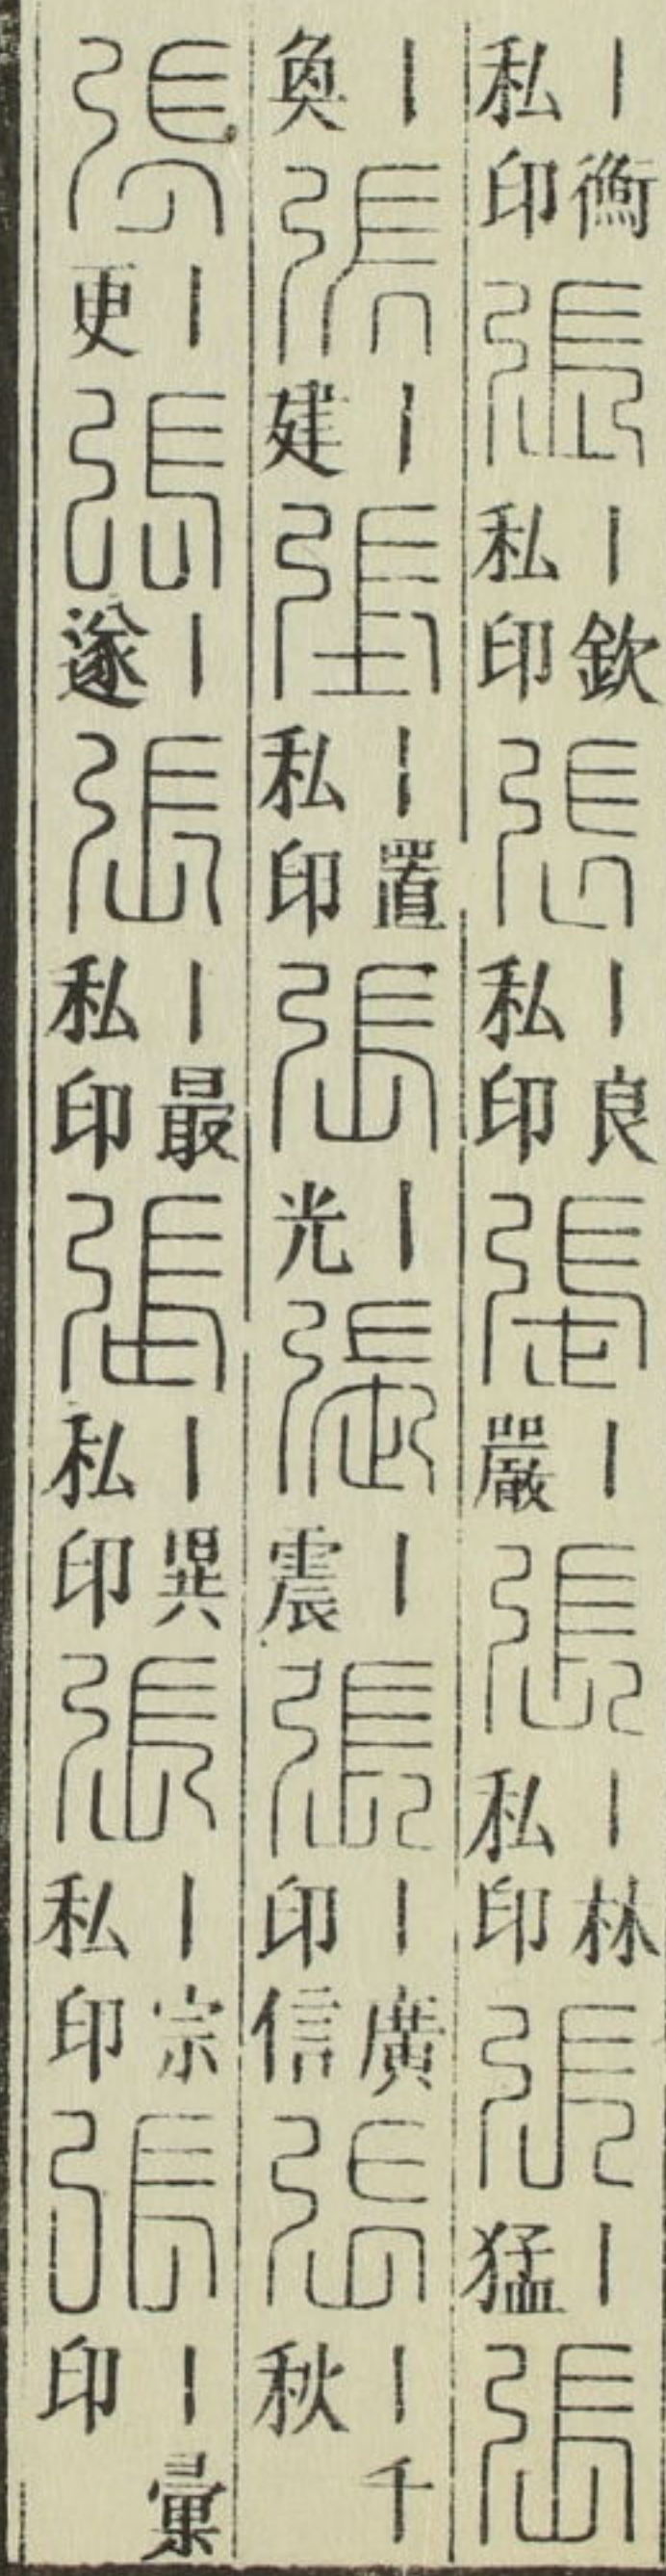 丨衡私印張丨欽私印張丨良私印張丨嚴張丨林私印張丨猛張
丨奐張丨建張丨置私印張丨光張丨震張丨廣印信張丨千秋
張丨更張丨遂張丨最私印張丨異私印張丨宗私印張丨彙印